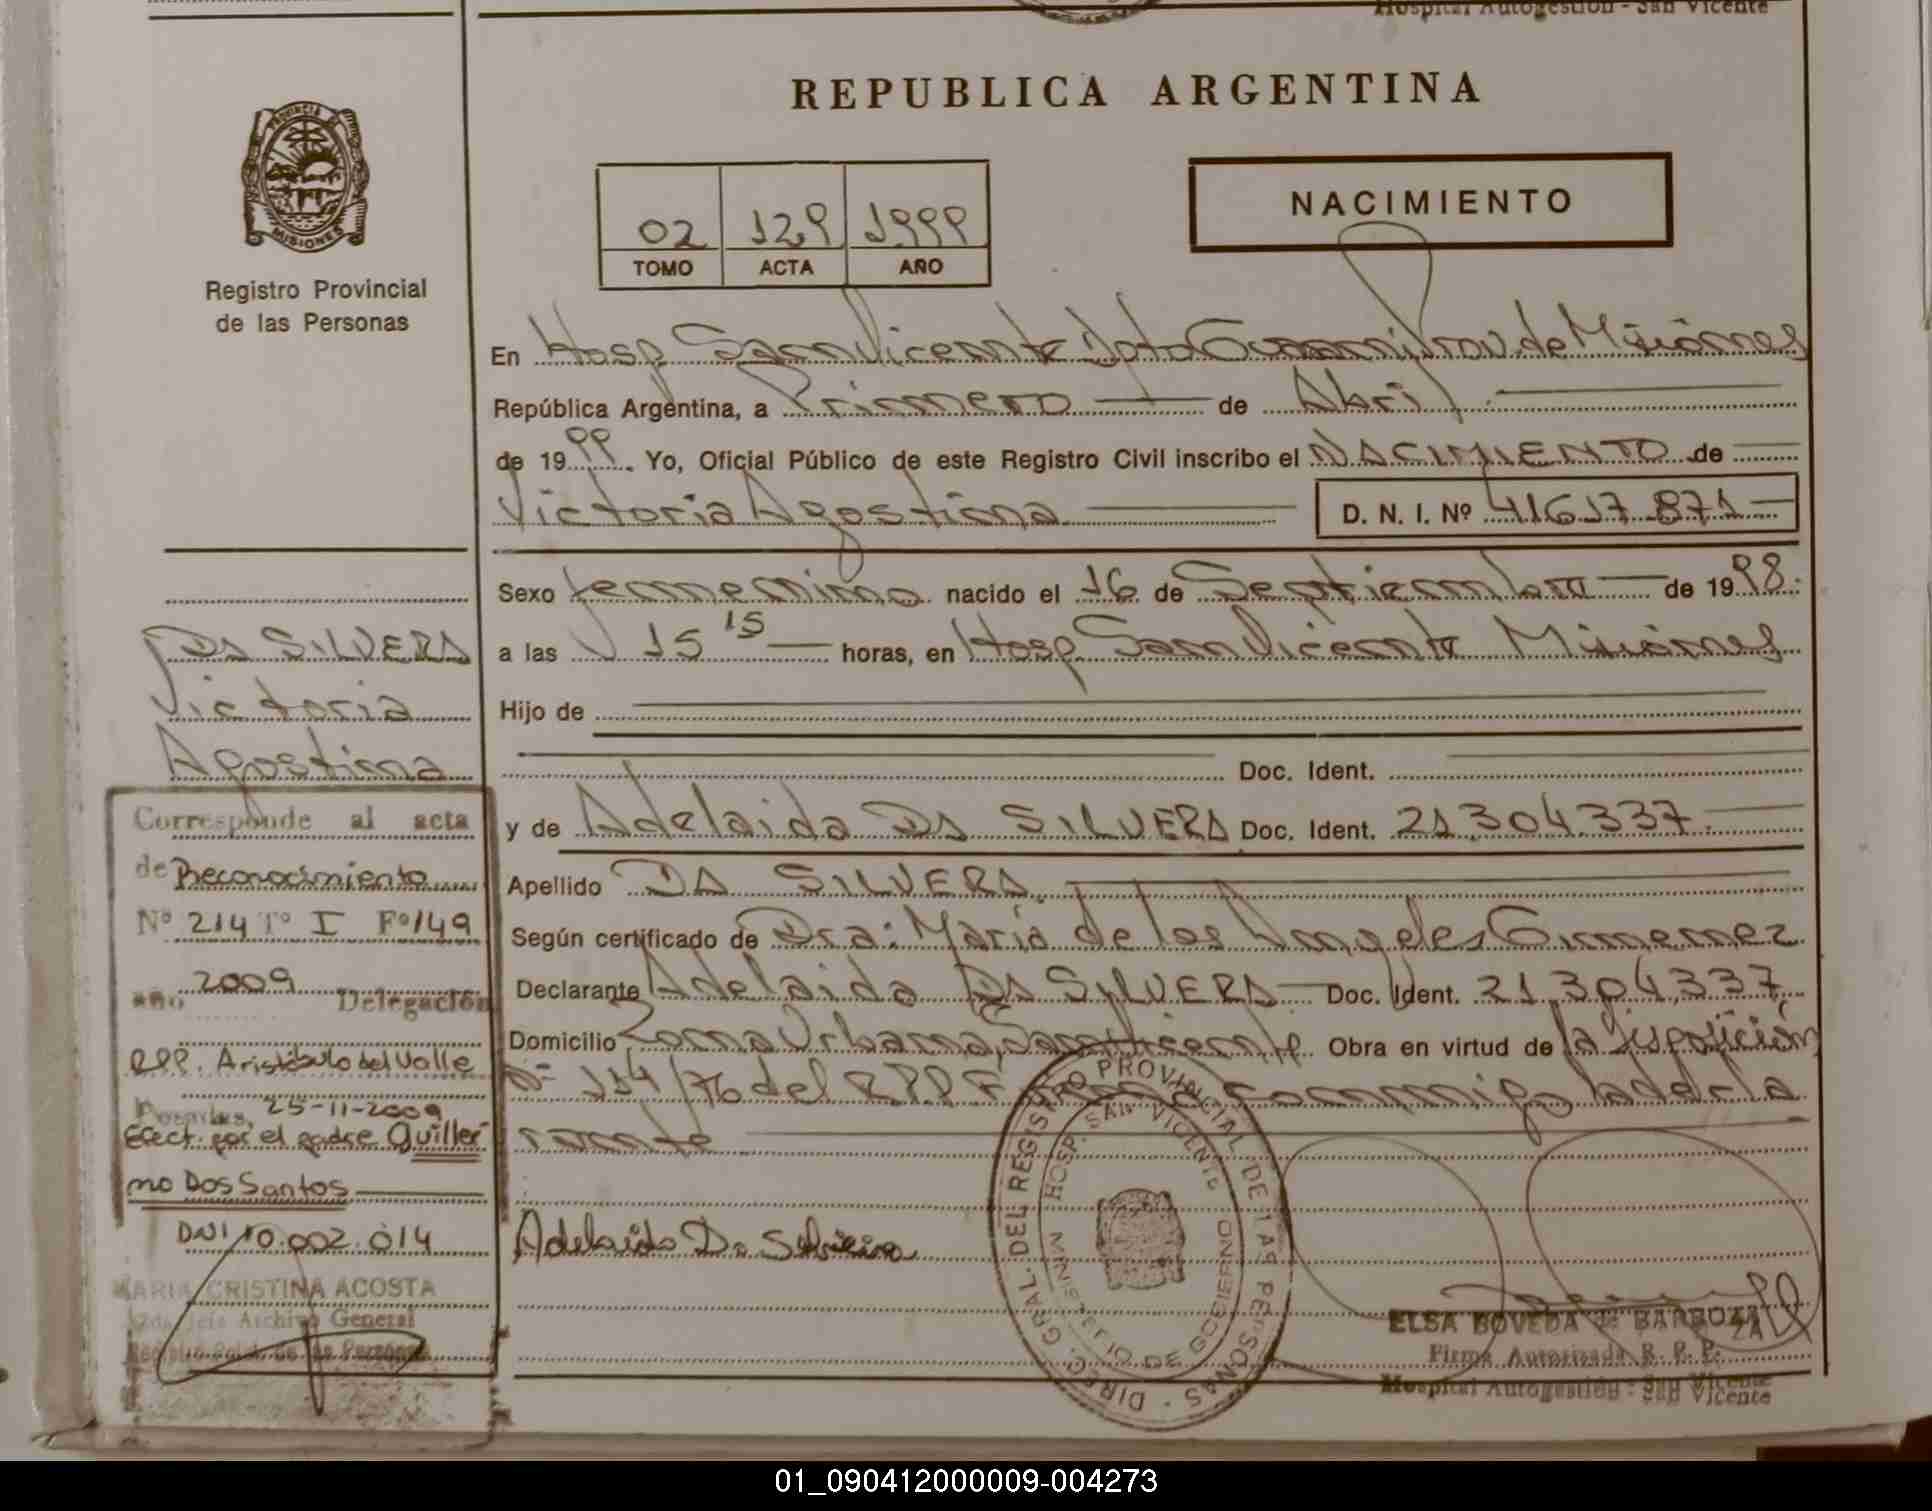 Hospital Autogestión - San Vicente
REPUBLICA ARGENTINA
PROVINCIA DE
MISIONES
Registro Provincial
de las Personas
02 129 1999
TOMO ACTA AÑO
NACIMIENTO
En Hosp San Vicente Dpto Guaraní Prov. de Misiones
República Argentina, a Primero de Abril
de 1999. Yo, Oficial Público de este Registro Civil inscribo el NACIMIENTO de
Victoria Agostina D. N. I. Nº 41617.871
Sexo femenino nacido el 16 de Septiembre de 1998.
a las 15 15 horas, en Hosp San Vicente Misiones
Hijo de
Doc. Ident.
y de Adelaida DA SILVERA Doc. Ident. 21.304.337
Apellido DA SILVERA
Según certificado de Dra: María de los Angeles Gimenez
Declarante Adelaida DA SYLVERA Doc. Ident. 21.304.337
Domicilio Zona Urbana, San Vicente. Obra en virtud de la disposición
Nº 114/76 del R.P.P. Firma conmigo la decla
rante
Adelaida Da Silveira
DIREC. GRAL. DEL REGISTRO PROVINCIAL DE LAS PERSONAS
HOSP. SAN VICENTE
MINISTERIO DE GOBIERNO
ELSA BOVEDA de BARBOZA
ZA
Firma Autorizada R. P. P.
Hospital Autogestión - San Vicente
DA SILVERA
Victoria
Agostina
Corresponde al acta
de Reconocimiento
Nº 214 Tº I Fº 149
año 2009 Delegación
RPP. Aristóbulo del Valle
Posadas, 25-11-2009
Efect. por el padre Guiller
mo Dos Santos
DNI 10.002.014
MARIA CRISTINA ACOSTA
Jefa Archivo General
Registro Pcial. de las Personas
01_090412000009-004273